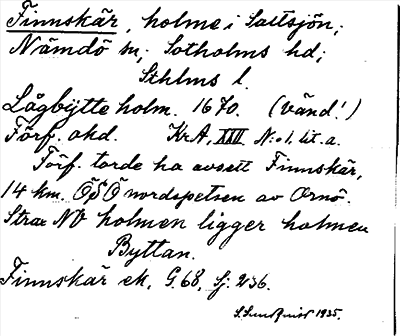 Finnskär, holme i Saltsjön;
Nämdö sn; Sotholms hd;
Sthlms l.
Lågbÿtte holm. 1670. (vänd!)
Förf. okd. KrA, XXII N:o 1, lit. a.
Förf. torde ha avsett Finnskär,
14 km. ÖSÖ nordspetsen av Ornö.
Strax NV holmen ligger holmen
Byttan.
Finnskär ek. G. 68, Sj. 236.
S. Sundqvist 1935.